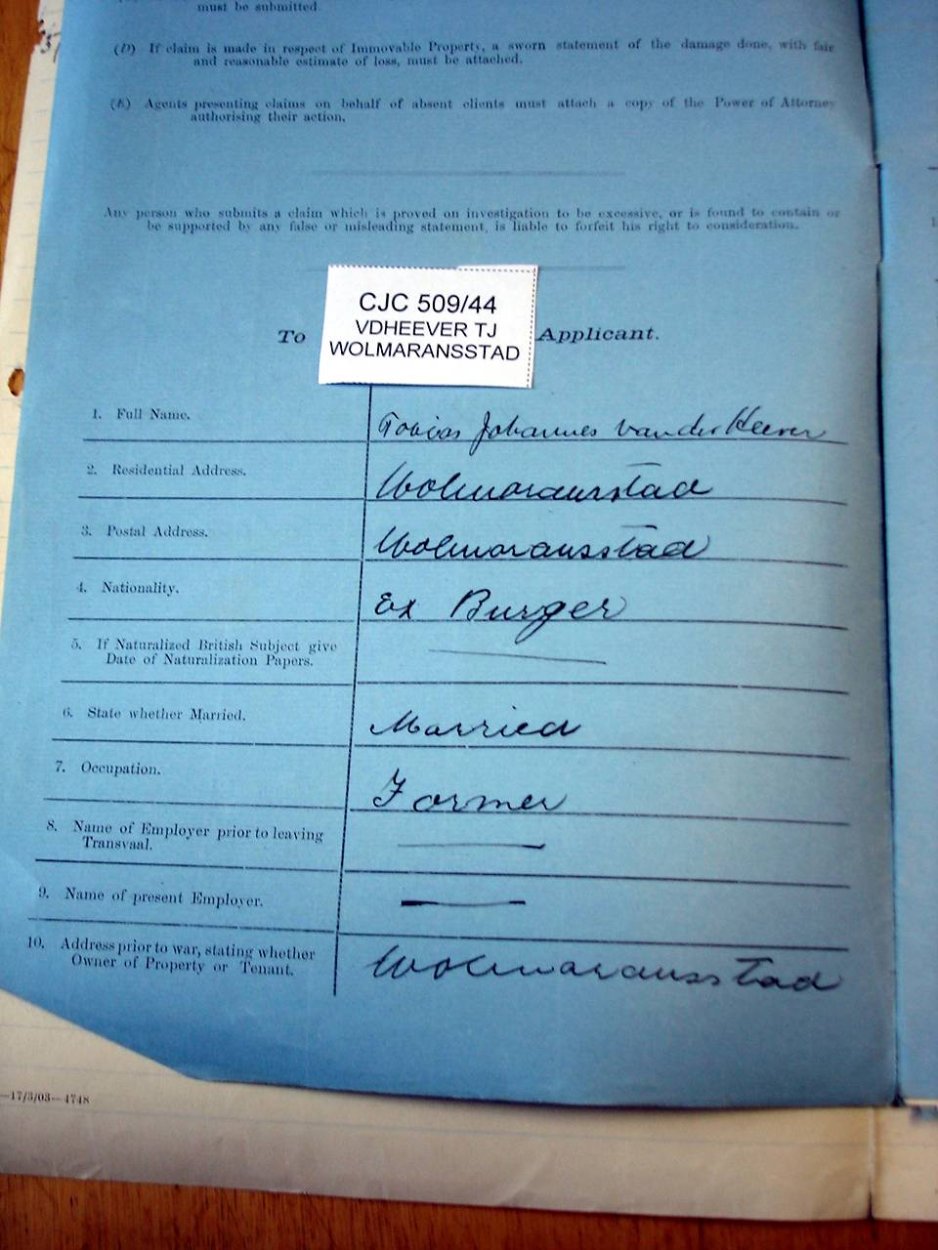 must be submitted.
(D) If claim is made in respect of Immovable Property, a sworn statement of the damage done, with fair
and reasonable estimate of loss, must be attached.
(E) Agents presenting claims on behalf of absent clients must attach a copy of the Power of Attorney
authorising their action.
Any person who submits a claim which is proved on investigation to be excessive, or is found to contain or
be supported by any false or misleading statement, is liable to forfeit his right to consideration.
CJC 509/44
VDHEEVER TJ
WOLMARANSSTAD
To Applicant.
1. Full Name. Tobias Johannes van der Heever
2. Residential Address. Wolmaransstad
3. Postal Address. Wolmaransstad
4. Nationality. Ex Burger
5. If Naturalized British Subject give
Date of Naturalization Papers.
6. State whether Married. Married
7. Occupation. Farmer
8. Name of Employer prior to leaving
Transvaal.
9. Name of present Employer.
10. Address prior to war, stating whether
Owner of Property or Tenant. Wolmaransstad
—17/3/03—4748